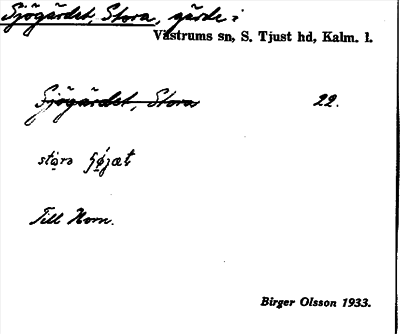 Sjögärdet, Stora, gärde i
Västrums sn, S. Tjust hd, Kalm. l.
Sjögärdet, Stora 22.
Till Horn.
Birger Olsson 1933.